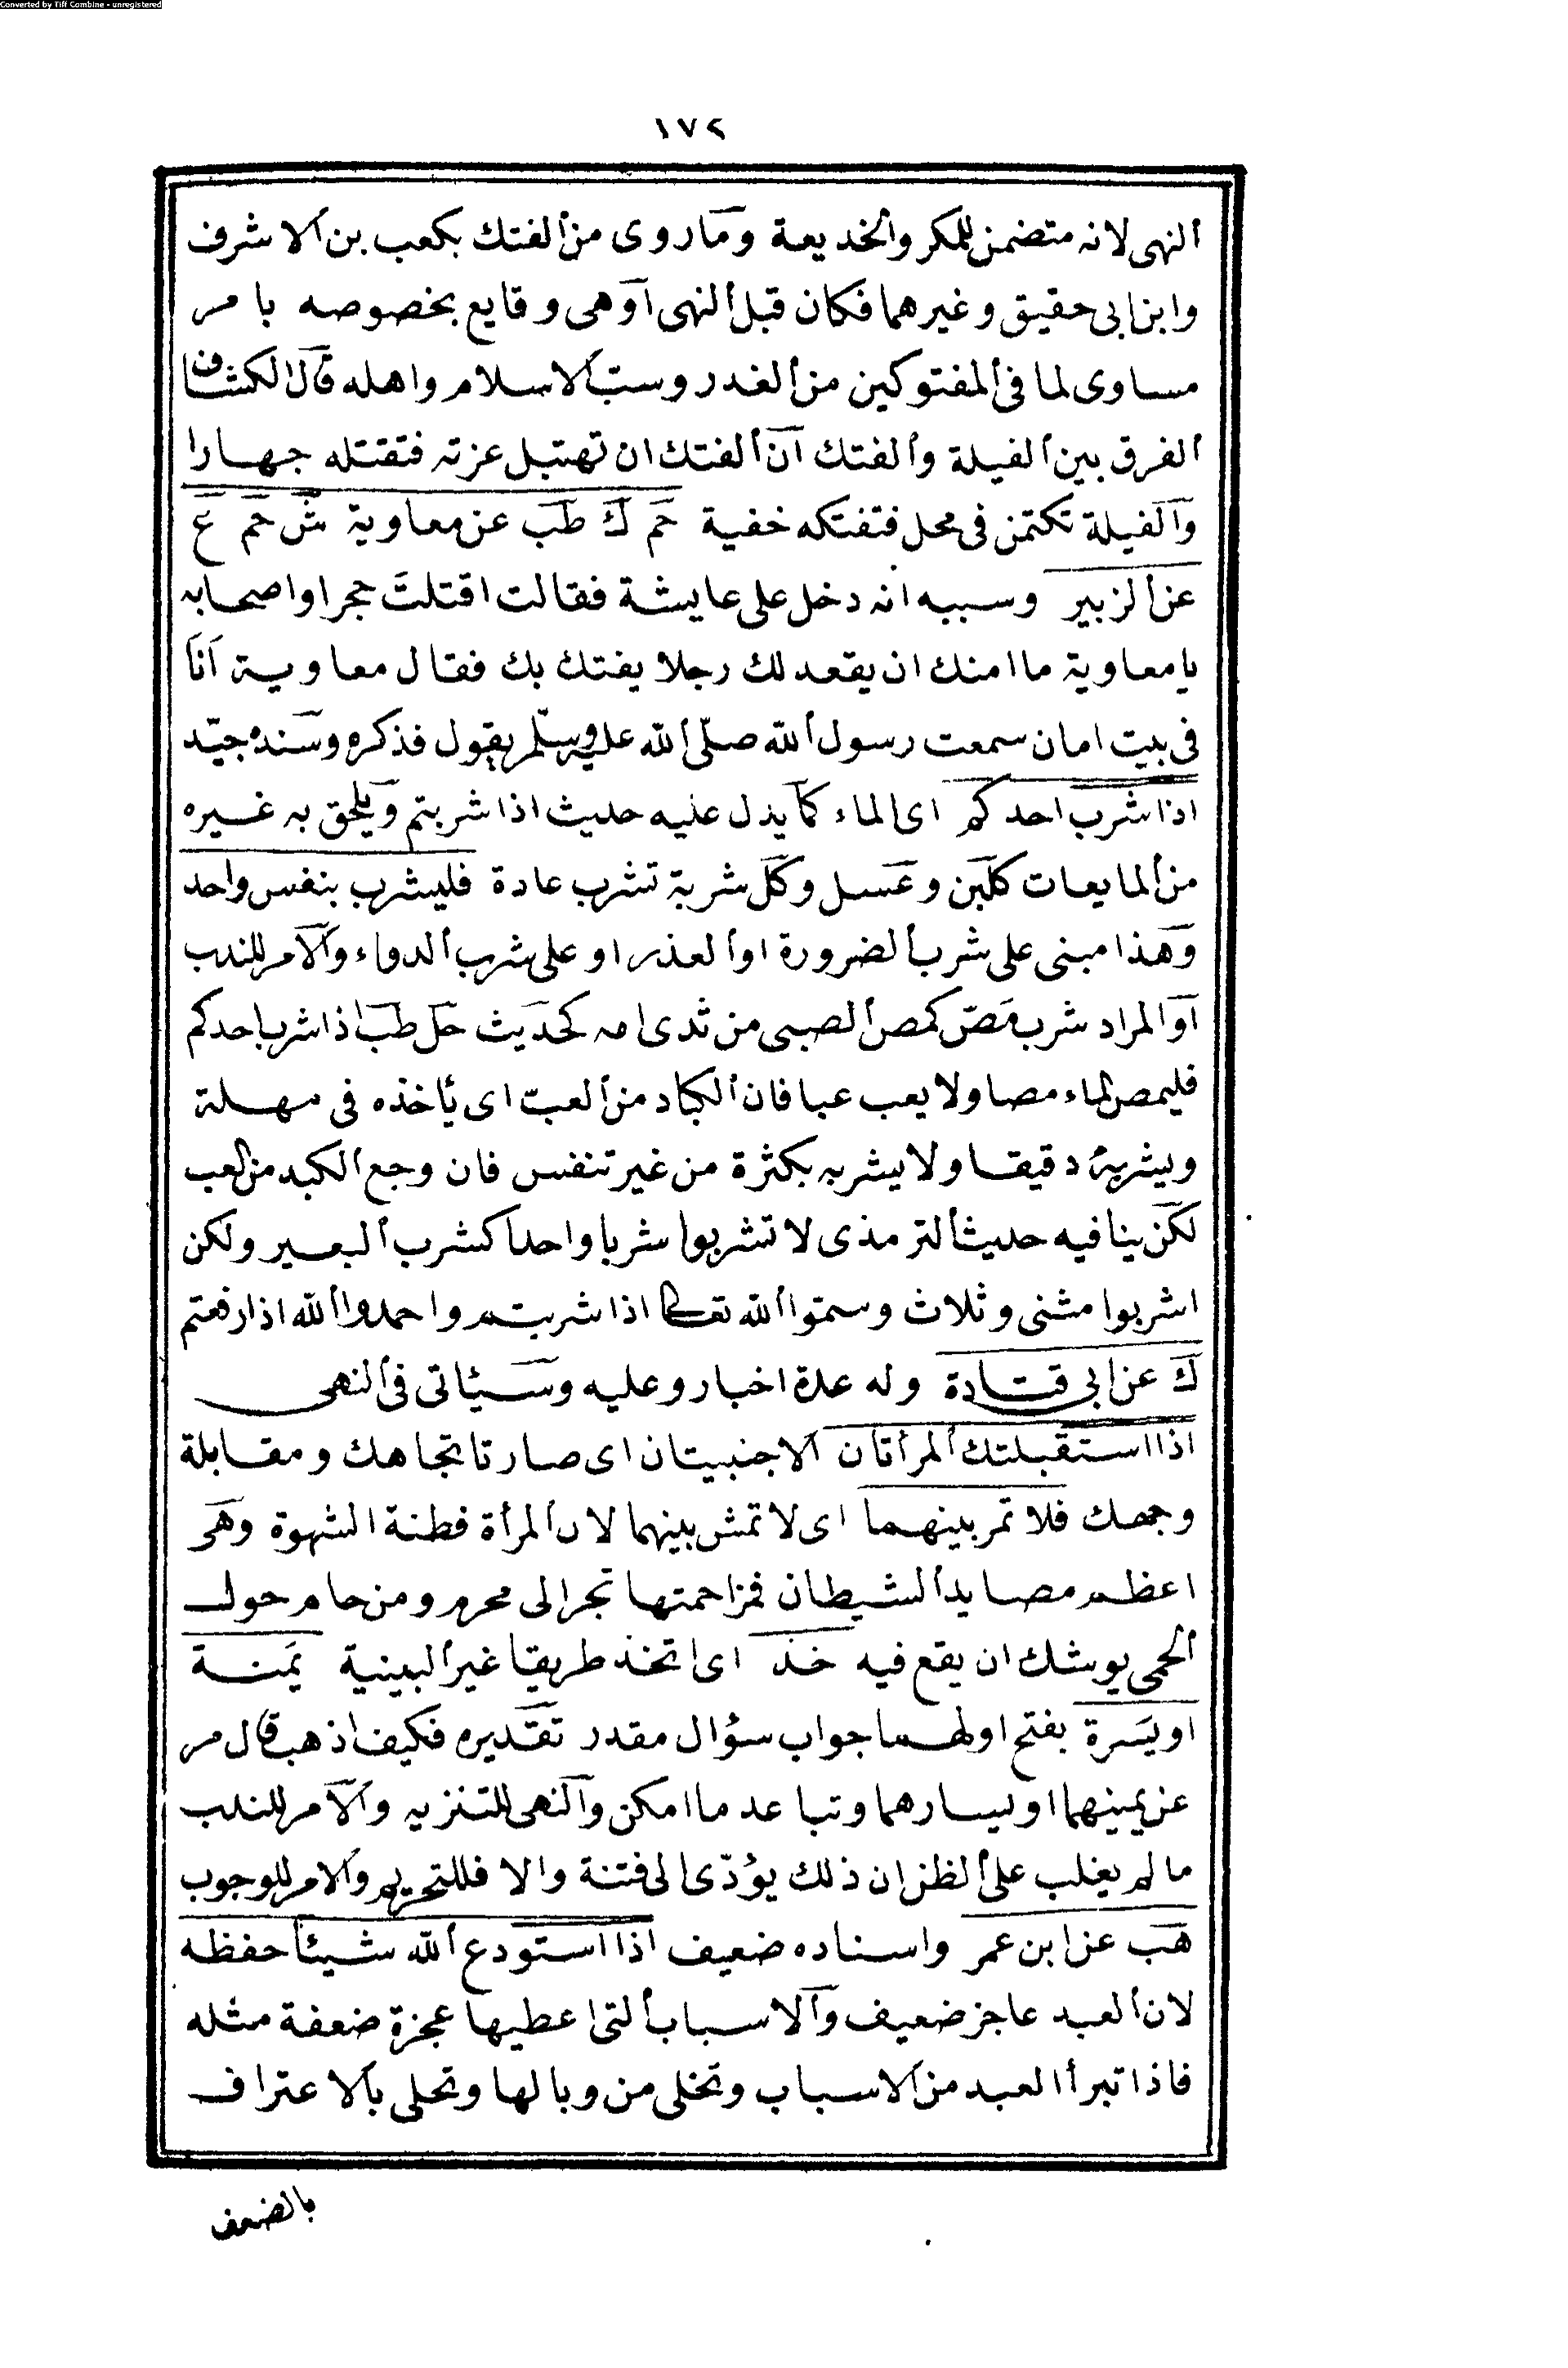 Converted by Tiff Combine - unregistered
١٧٢
النهى لانه متضمن للمكر والخديعة وما روى من الفتك بكعب بن الاشرف
وابن ابى حقيق وغيرهما فكان قبل النهى او هى وقايع بخصوصه بامر
سماوى لما فى المفتوكين من الغدر وسب الاسلام واهله قال الكشاف
الفرق بين الغيلة والفتك ان الفتك ان تهتبل عزته فتقتله جهارا
والغيلة تكتمن فى محل فتفتكه خفية حم ك طب عن معاوية ش حم ع
عن الزبير وسببه انه دخل على عايشة فقالت اقتلت حجرا واصحابه
يا معاوية ما امنك ان يقعد لك رجلا يفتك بك فقال معاوية انا
فى بيت امان سمعت رسول الله صلى الله عليه وسلم يقول فذكره وسنده جيد
اذا شرب احدكم اى الماء كما يدل عليه حديث اذا شربتم ويلحق به غيره
من المايعات كلبن وعسل وكل شربة تشرب عادة فليشرب بنفس واحد
وهذا مبنى على شرب الضرورة او العذر او على شرب الدواء والامر للندب
او المراد شرب مص كمص الصبى من ثدى امه كحديث حل طب اذا شرب احدكم
فليمص الماء مصا ولا يعب عبا فان الكباد من العب اى يأخذه فى مهلة
ويشربه دقيقا ولا يشربه بكثرة من غير تنفس فان وجع الكبد من العب
لكن ينافيه حديث الترمذى لا تشربوا شربا واحدا كشرب البعير ولكن
اشربوا مثنى وثلاث وسموا الله تعالى اذا شربتم واحمدوا الله اذا رفعتم
ك عن ابى قتادة وله عدة اخبار وعليه وسيأتى فى النهى
اذا استقبلتك المرأتان الاجنبيتان اى صارتا تجاهك ومقابلة
وجهك فلا تمر بينهما اى لا تمش بينهما لان المرأة فطنة الشهوة وهى
اعظم مصايد الشيطان فمزاحمتها تجر الى محرم ومن حام حول
الحمى يوشك ان يقع فيه خذ اى اتخذ طريقا غير البينية يمنة
او يسرة بفتح اولهما جواب سؤال مقدر تقديره فكيف اذهب قال مر
عن يمينهما او يسارهما وتباعد ما امكن والنهى للتنزيه والامر للندب
ما لم يغلب على الظن ان ذلك يؤدى الى فتنة والا فللتحريم والامر للوجوب
هب عن ابن عمر واسناده ضعيف اذا استودع الله شيئا حفظه
لان العبد عاجز ضعيف والاسباب التى اعطيها عجزة ضعفة مثله
فاذا تبرأ العبد من الاسباب وتخلى من وبالها وتحلى بالاعتراف
بالضعف